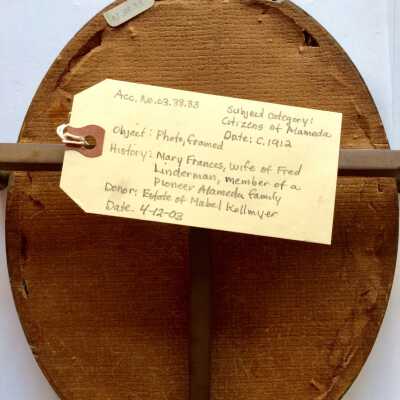 Acc. No. 03.38.33
Subject Category:
Citizens of Alameda
Object: Photo, framed
Date: C. 1912
History: Mary Frances, wife of Fred
Linderman, member of a
Pioneer Alameda family
Donor: Estate of Mabel Kollmyer
Date. 4-12-03